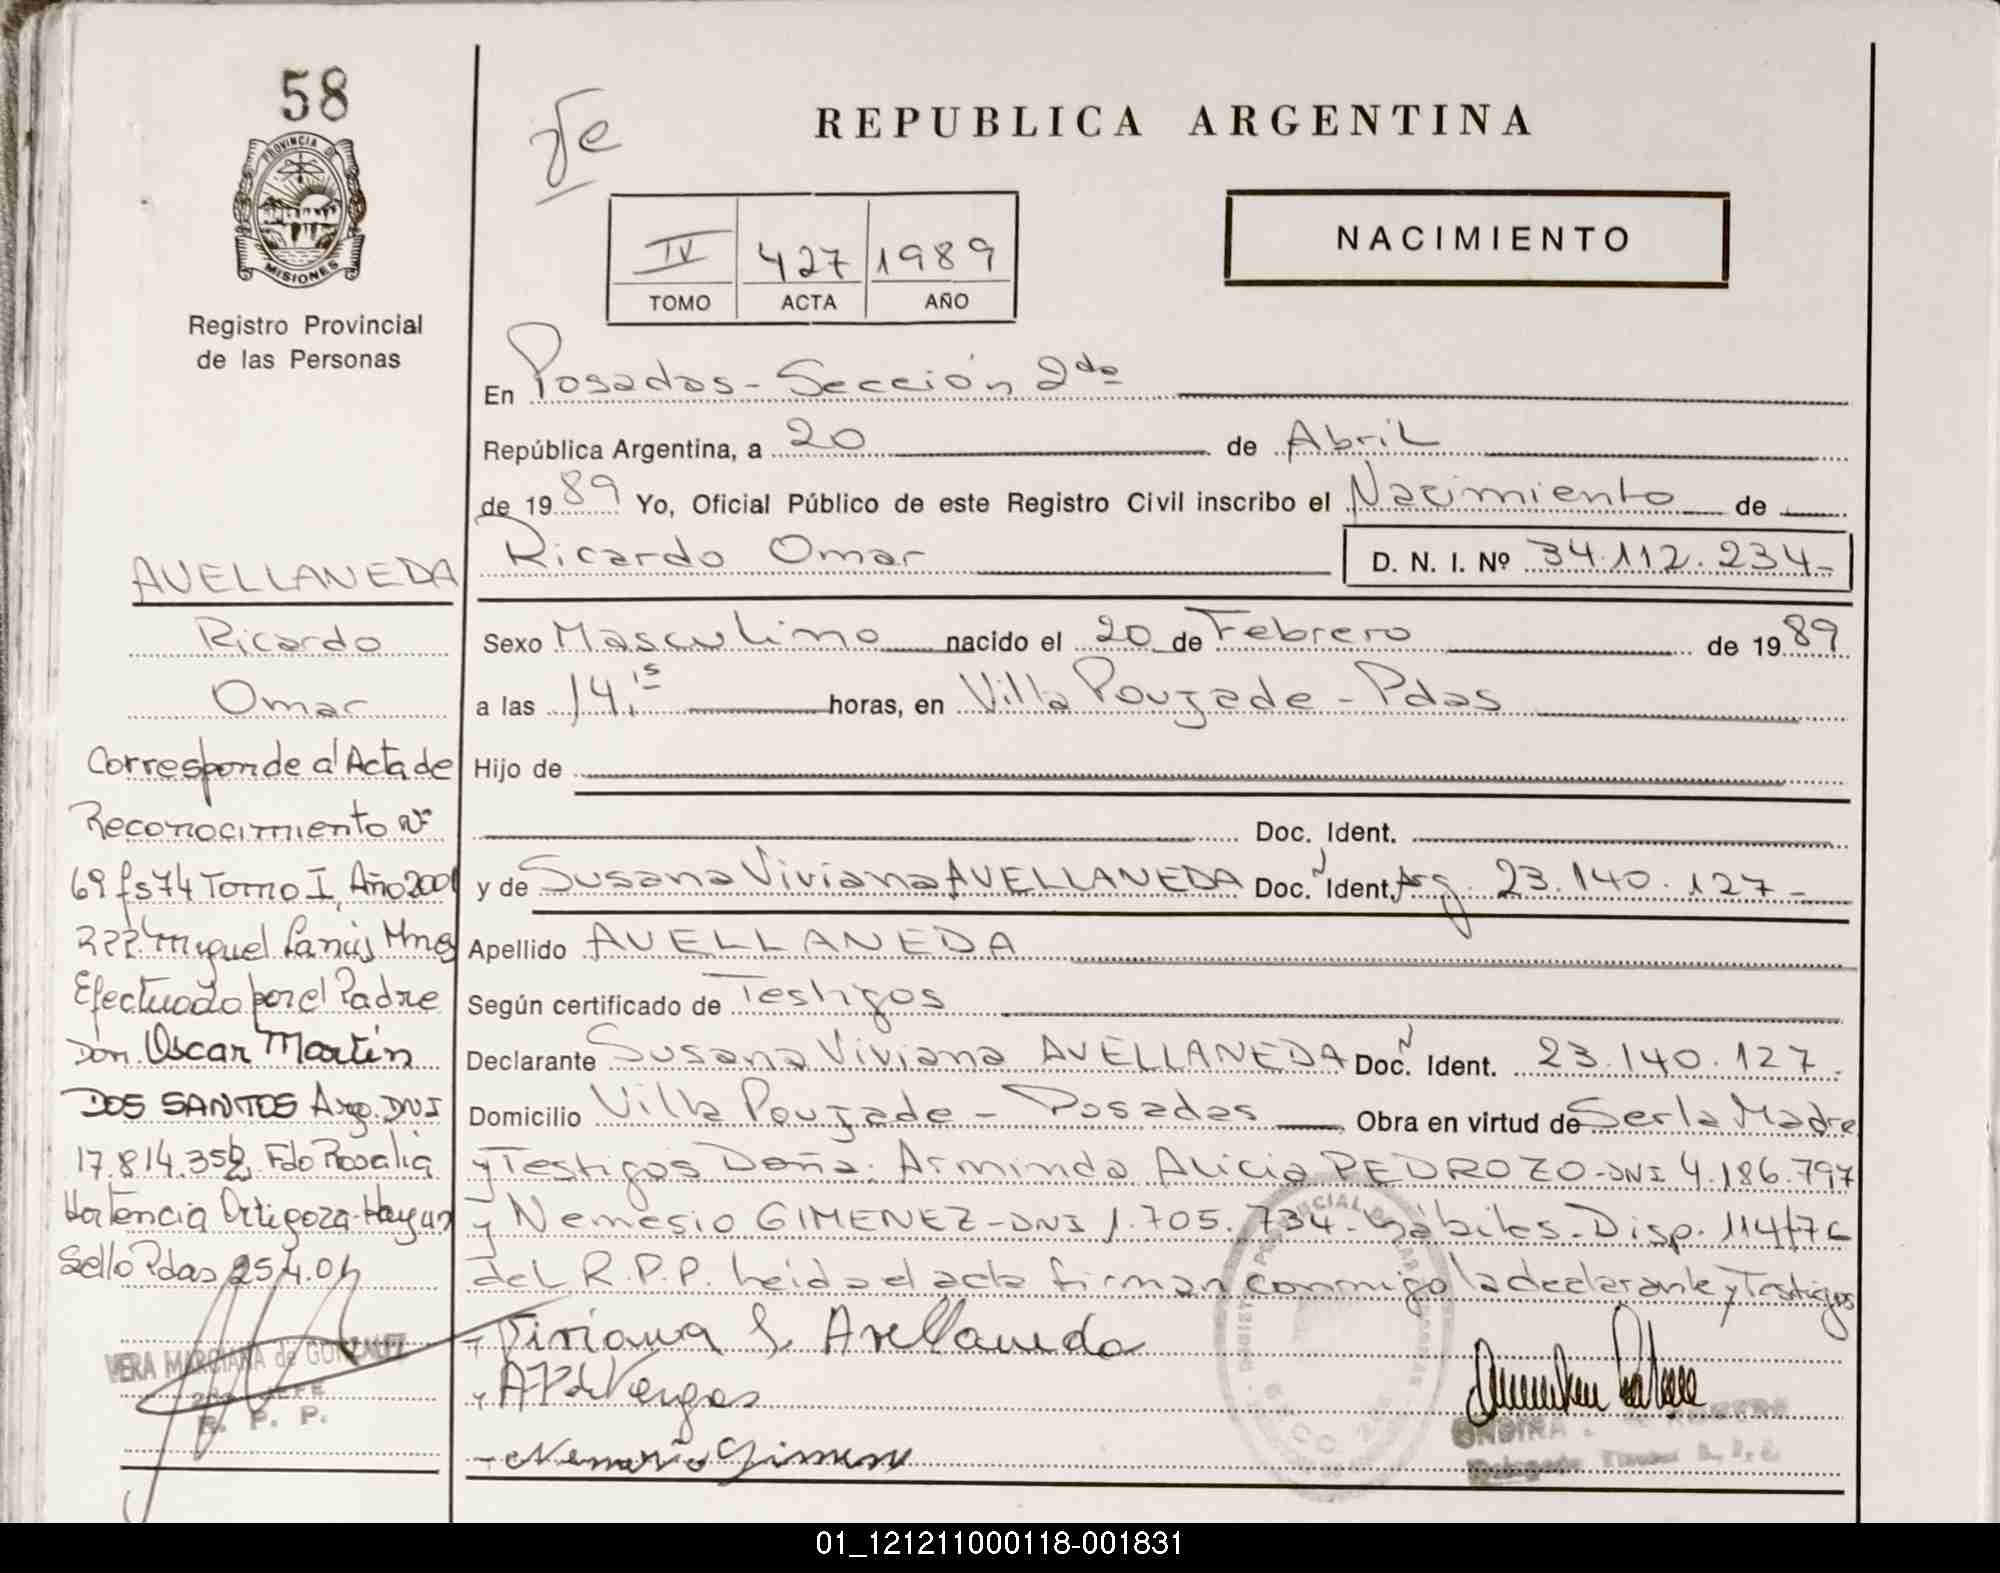 58
PROVINCIA DE
MISIONES
Registro Provincial
de las Personas
AVELLANEDA
Ricardo
Omar
Corresponde al Acta de
Reconocimiento Nº
69 fs 74 Tomo I, Año 2001
Miguel Lanús Mnes
Efectuado por el Padre
Don Oscar Martín
DOS SANTOS Arg. DNI
17.814.352 Fdo Rosalia
Hortencia Ortigoza
Sello Pdas 25.4.01
VERA MARCIANA de GONZALEZ
JEFE
R. P. P.
REPUBLICA ARGENTINA
IV 427 1989
TOMO ACTA AÑO
NACIMIENTO
En Posadas - Sección 2da
República Argentina, a 20 de Abril
de 1989 Yo, Oficial Público de este Registro Civil inscribo el Nacimiento de
Ricardo Omar D. N. I. Nº 34.112.234-
Sexo Masculino nacido el 20 de Febrero de 1989
a las 14.15 horas, en Villa Poujade - Pdas
Hijo de
Doc. Ident.
y de Susana Viviana AVELLANEDA Doc. N Ident. Arg. 23.140.127-
Apellido AVELLANEDA
Según certificado de Testigos
Declarante Susana Viviana AVELLANEDA Doc. N Ident. 23.140.127.
Domicilio Villa Poujade - Posadas Obra en virtud de Ser la Madre
y Testigos Doña. Arminda Alicia PEDROZO-DNI 4.186.797
y Nemesio GIMENEZ-DNI 1.705.734-hábiles-Disp. 114/76
del R.P.P. leida el acta firman conmigo la declarante y Testigos
- Viviana S. Avellaneda
- A P de Vargas
- Nemesio Gimenez
01_121211000118-001831